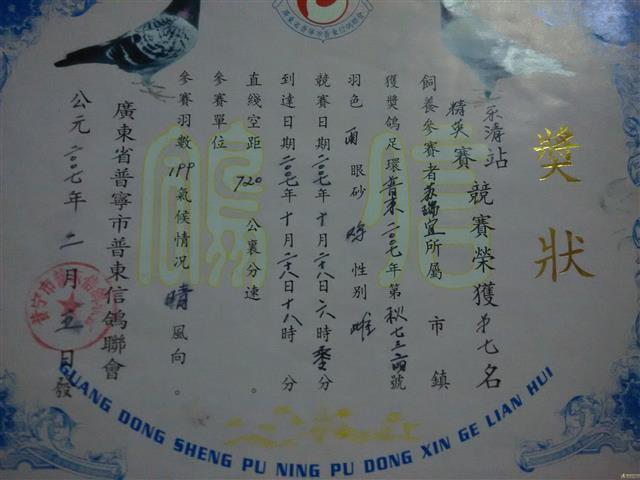 獎狀
站
精英賽 競賽榮獲第七名
飼養參賽者 蘇瑞宜 所屬 市 鎮
獲獎鴿足環普東二〇〇七年第秋七三六號
羽色 雨 眼砂 性別 雌
競賽日期二〇〇七年十月二十八日六時零分
到達日期二〇〇七年十月二十八日十八時 分
直綫空距 720 公裏分速 。
參賽單位
參賽羽數 199 氣候情況 晴 風向 。
廣東省普寧市普東信鴿聯會
公元二〇〇七年二月五日發
信鴿
GUANG DONG SHENG PU NING PU DONG XIN GE LIAN HUI